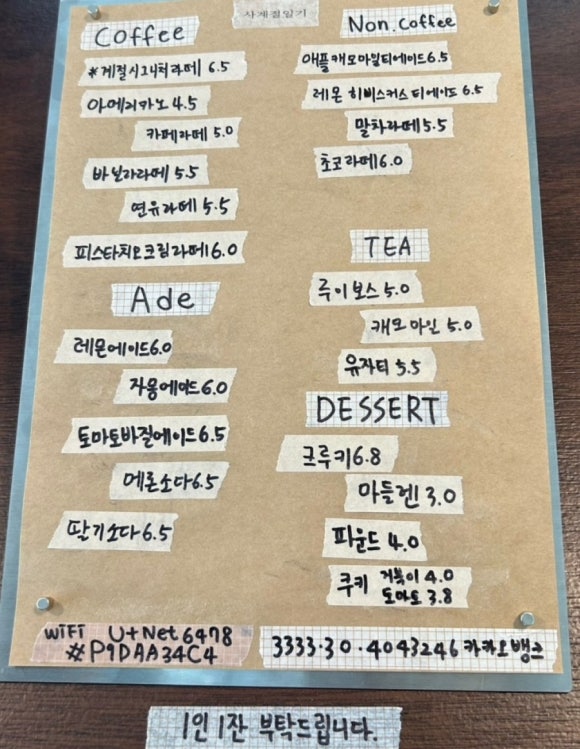 사계절일기
Coffee
#계절시그니처라떼 6.5
아메리카노 4.5
카페라떼 5.0
바닐라라떼 5.5
연유라떼 5.5
피스타치오크림라떼 6.0
Ade
레몬에이드 6.0
자몽에이드 6.0
토마토바질에이드 6.5
메론소다 6.5
딸기소다 6.5
Non.Coffee
애플캐모마일티에이드 6.5
레몬 히비스커스 티에이드 6.5
말차라떼 5.5
초코라떼 6.0
TEA
루이보스 5.0
캐모마일 5.0
유자티 5.5
DESSERT
크루키 6.8
마들렌 3.0
파운드 4.0
쿠키 거북이 4.0
토마토 3.8
WiFi U+Net6478
#P9DAA34C4
3333-30-4043246 카카오뱅크
1인 1잔 부탁드립니다.